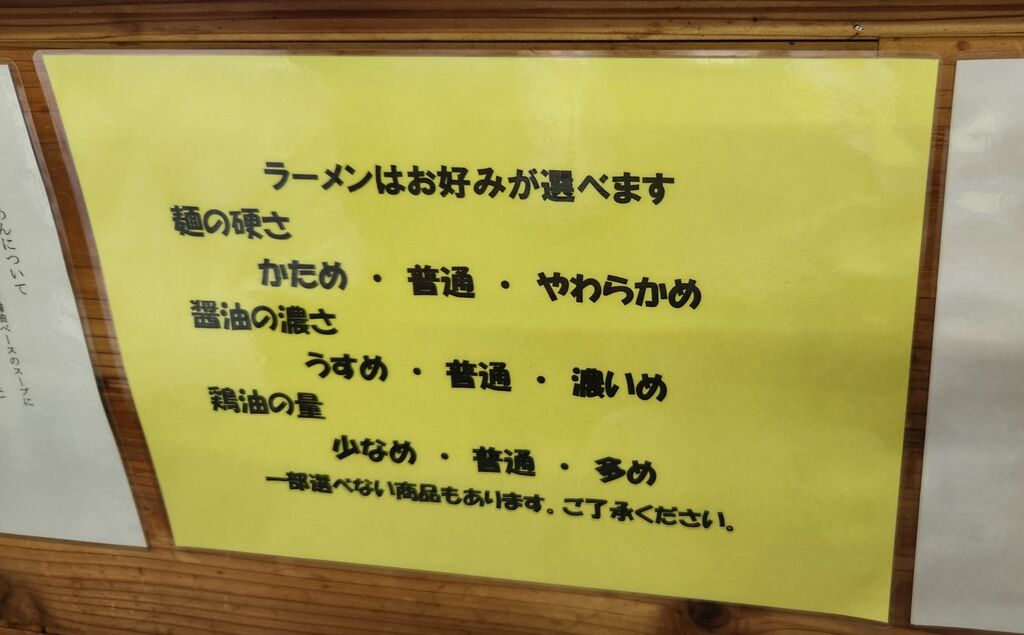 ラーメンはお好みが選べます
麺の硬さ
かため ・ 普通 ・ やわらかめ
醤油の濃さ
うすめ ・ 普通 ・ 濃いめ
鶏油の量
少なめ ・ 普通 ・ 多め
一部選べない商品もあります。ご了承ください。
んについて
油ベースのスープに